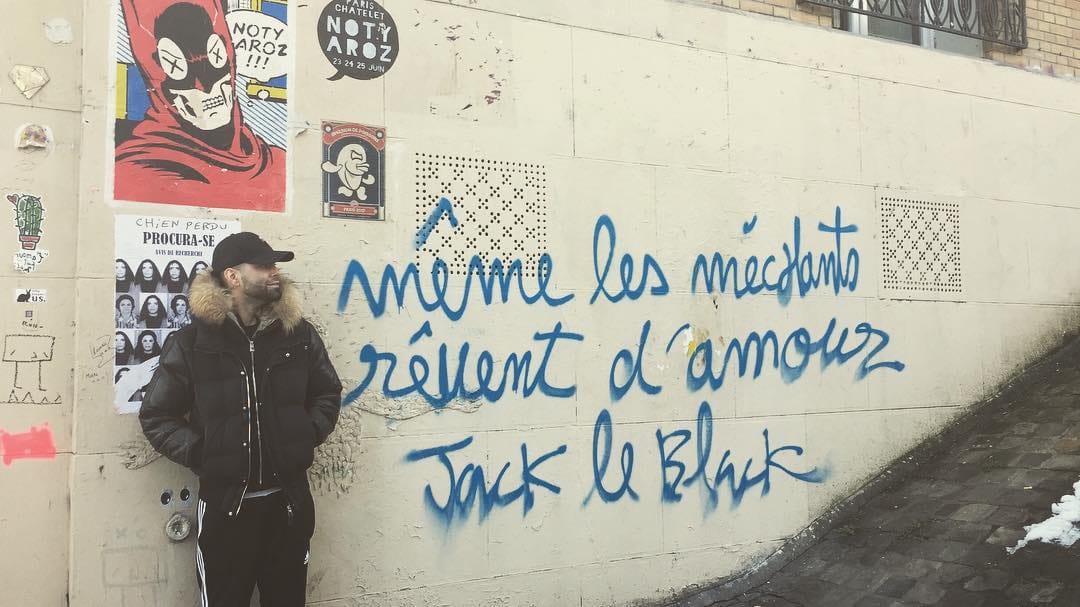 NOTY
AROZ
!!!
PARIS
CHATELET
NOTY
AROZ
23 24 25 JUIN
CHiEN PERDU
PROCURA-SE
AVIS DE RECHERCHE
US.
même les méchants
rêvent d'amour
Jack le Black